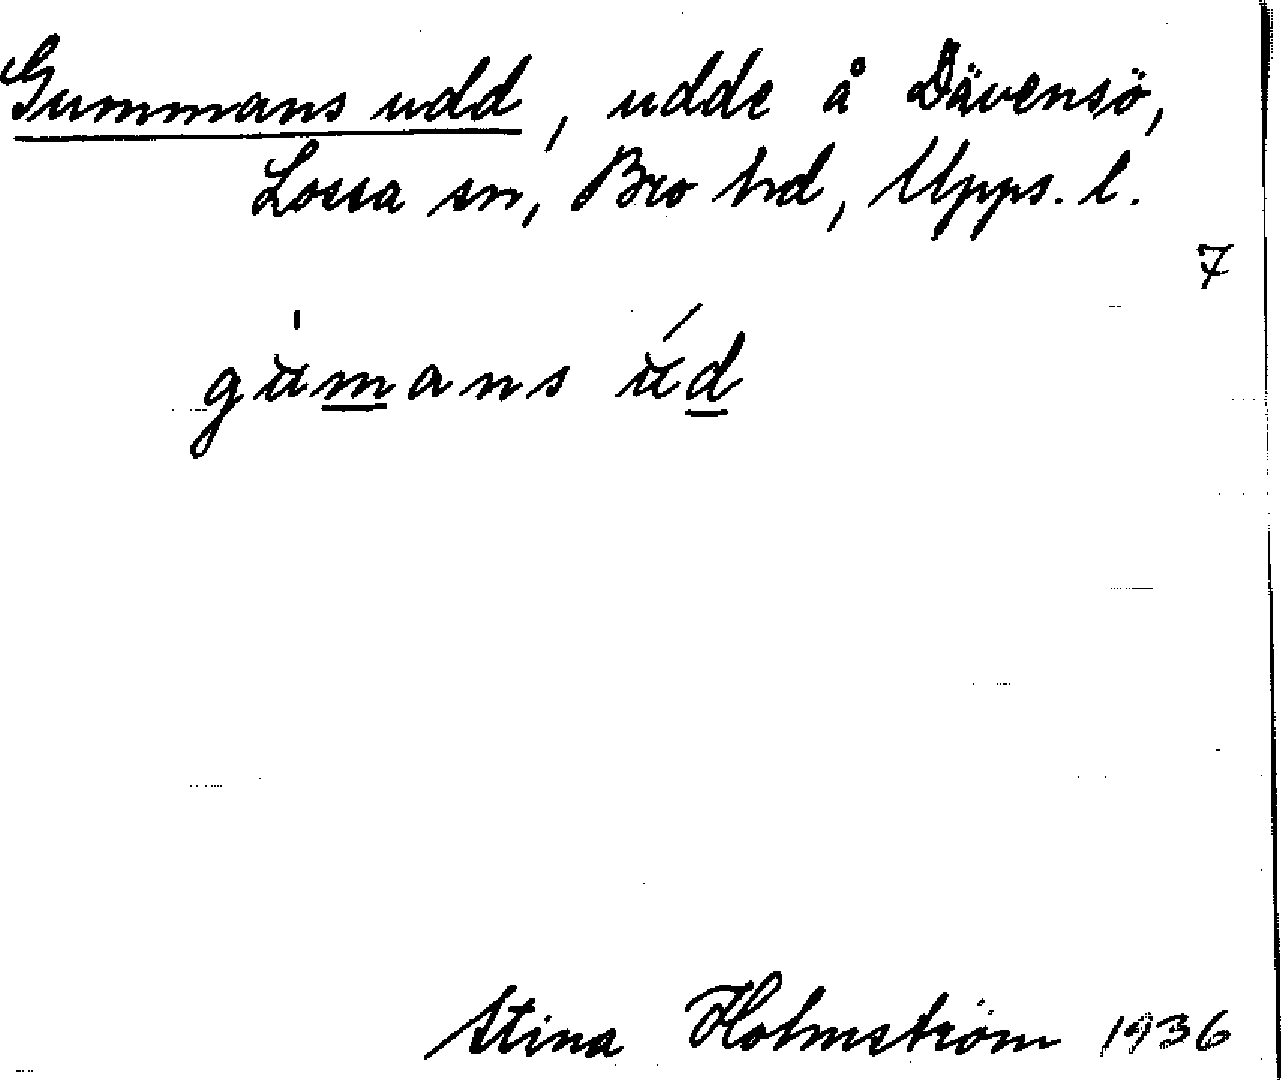 Gummans udd, udde å Dävensö,
Lossa sn, Bro hd, Upps. l.
7
gumans ud
Stina Holmström 1936